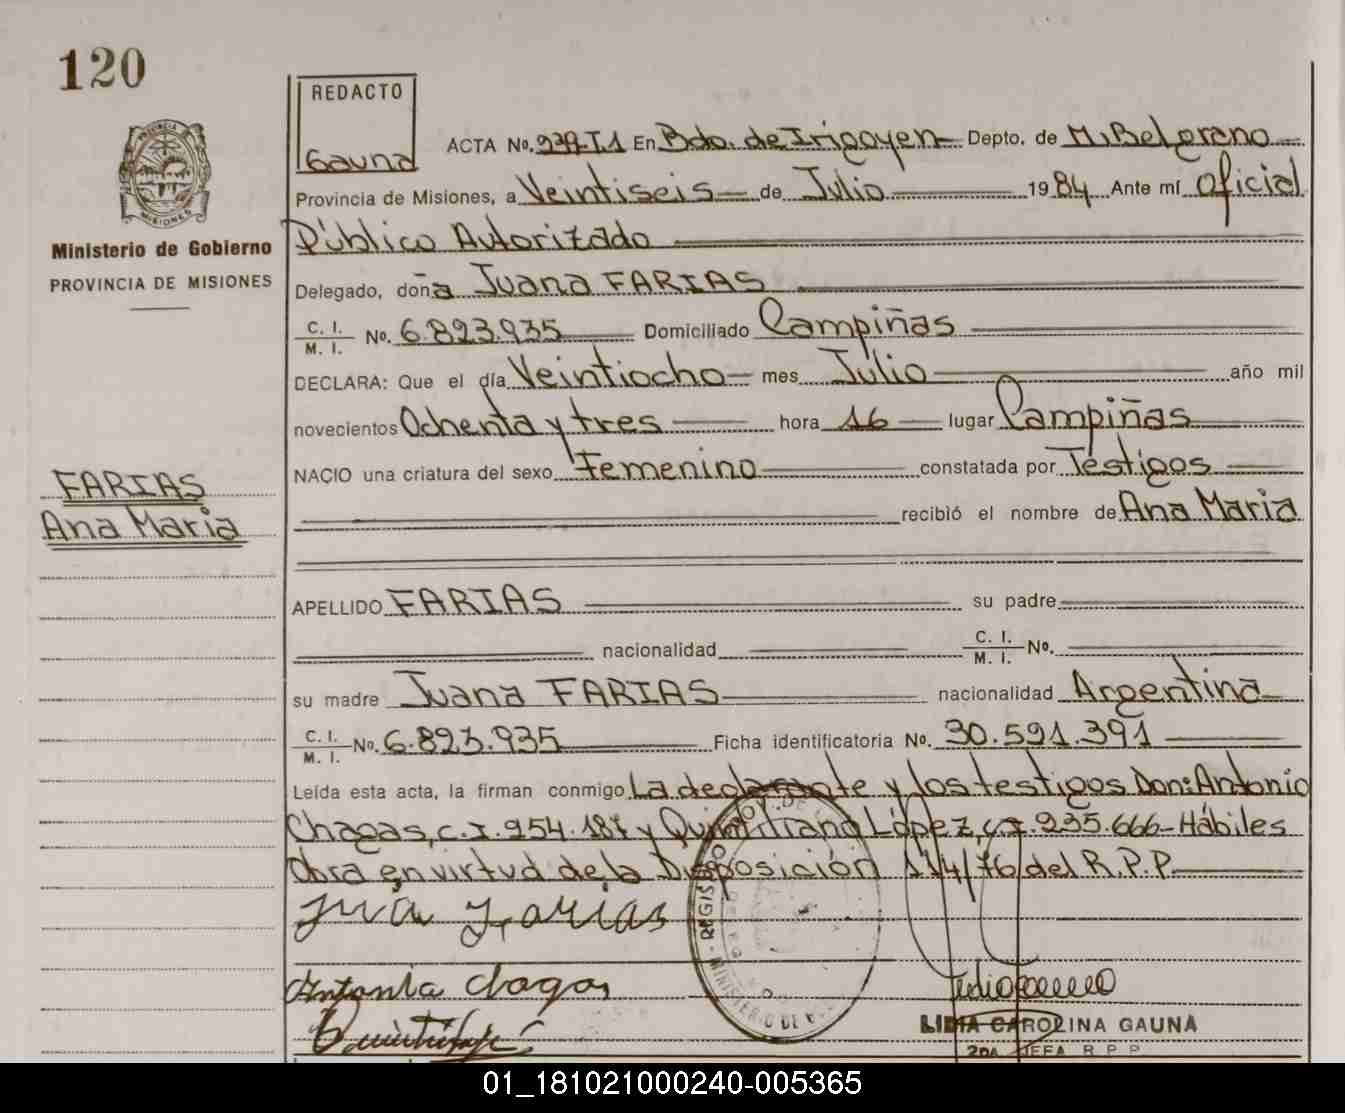 120
REDACTO
Gauna
ACTA No. 239-T.1 En Bdo. de Irigoyen Depto. de M. Belgrano
Provincia de Misiones, a Veintiseis de Julio 1984 Ante mí Oficial
Público Autorizado
PROVINCIA DE
MISIONES
Ministerio de Gobierno
PROVINCIA DE MISIONES
Delegado, doña Juana FARIAS
C. I.
M. I. No. 6.823.935 Domiciliado Campiñas
DECLARA: Que el día Veintiocho mes Julio año mil
novecientos Ochenta y tres hora 16 lugar Campiñas
NACIO una criatura del sexo Femenino constatada por Testigos
FARIAS
Ana Maria
recibió el nombre de Ana Maria
APELLIDO FARIAS su padre
nacionalidad C. I.
M. I. No.
su madre Juana FARIAS nacionalidad Argentina
C. I.
M. I. No. 6.823.935 Ficha identificatoria No. 30.591.391
Leída esta acta, la firman conmigo La declarante y los testigos Don: Antonio
Chagas, c.I. 254.187 y Quintiliano López, c.I. 235.666- Hábiles
Obra en virtud de la Disposición 114/76 del R.P.P.
Jua Farias
Antonia Chagas
LIDIA CAROLINA GAUNA
2DA JEFA R P P
01_181021000240-005365